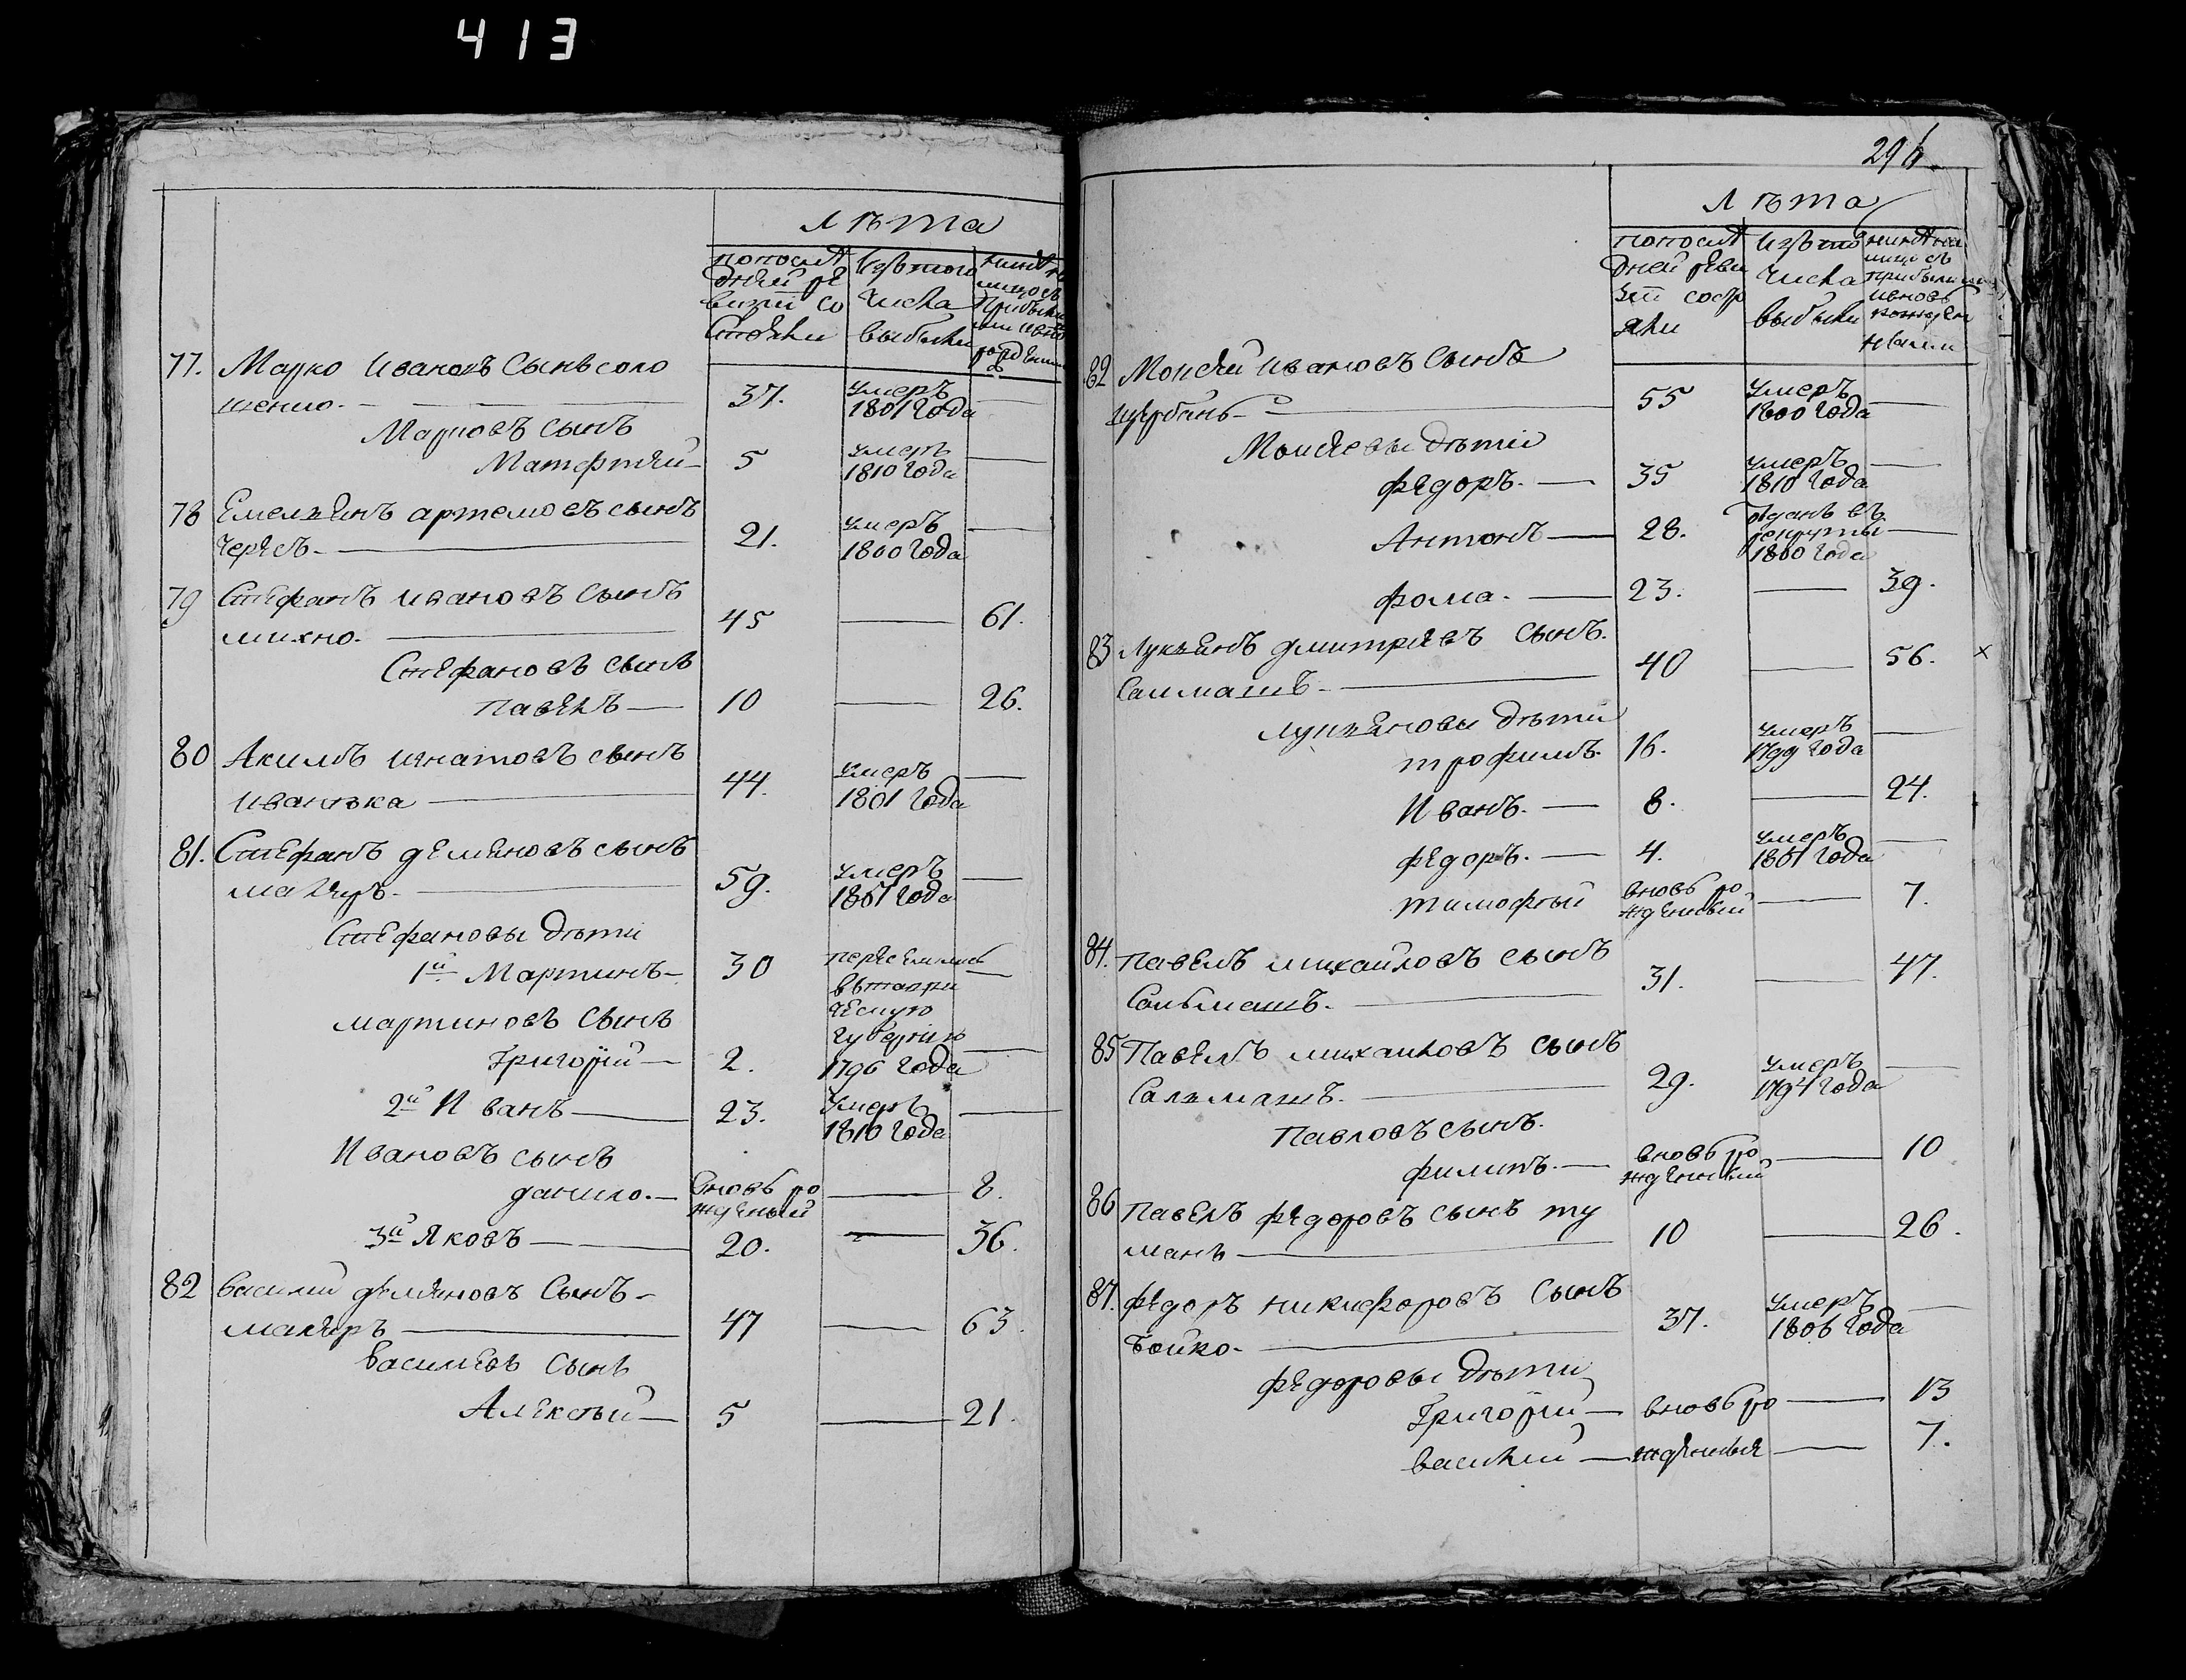 413
Лѣта
попослѣ
дней ре
визіи со
стояли
Изътого
числа
выбыли
нинѣ на
лицо съ
прибыли
ми ивно
рождении
77. Марко Ивановъ Сынъ соло
шенко. 37. Умеръ 1801 года —
Марковъ сынъ
Матфѣй — 5 умеръ 1810 года —
78 Емельянъ артемовъ сынъ
Чересъ — 21. умеръ 1800 года —
79 Стефанъ ивановъ Сынъ
михно. — 45 — 61.
Стефановъ сынъ
павелъ — 10 — 26.
80 Акимъ игнатовъ сынъ
иванъка — 44. Умеръ 1801 года —
81. Стефанъ демяновъ сынъ
макяръ — 59. умеръ 1801 года —
Стефановы дѣти
1й Мартинъ — 30 переселились —
въ таври
ческую
губернію
мартиновъ Сынъ
Григорій — 2. 1796 года —
2й Иванъ — 23. умеръ 1810 года —
Ивановъ сынъ
данило. — вновь ро жденый — 8.
3й Яковъ — 20. — 36.
82 Василий демяновъ Сынъ —
макяръ — 47 — 63.
Васильевъ Сынъ
Алексѣй — 5 — 21.
296.
Лѣта
попослѣ
дней реви
зіи состо
яли
Изъ того
числа
выбыли
нинѣ на
лицо съ
прибылими
ивновь
рожден
ными
82 Моисѣй Ивановъ Сынъ
щербань — 55 Умеръ 1800 года —
Моисѣевы дѣти
федоръ. — 35 умеръ 1810 года —
Антонъ — 28. Отданъ въ рекруты 1800 года —
фома. — 23. — 39.
83 Лукьянъ дмитріевъ сынъ.
Салмашъ — 40 — 56. ×
лукьяновы дѣти
трофимъ. 16. умеръ 1799 года —
Иванъ. — 8. — 24.
федоръ. — 4. умеръ 1801 года —
тимофѣй вновь ро жденный — 7.
84. павелъ михайловъ сынъ
Сальмашъ. — 31. — 47.
85 Павелъ михаиловъ сынъ
Салъмашъ. — 29. умеръ 1794 года —
Павловъ сынъ.
филипъ. — вновь ро жденный — 10
86 Павелъ федоровъ сынъ ту
манъ — 10 — 26.
87. федоръ никифоровъ Сынъ
Бойко. — 37. Умеръ 1806 года —
федоровы дѣти
Григорій — вновь ро — 13
василий — жденныя — 7.